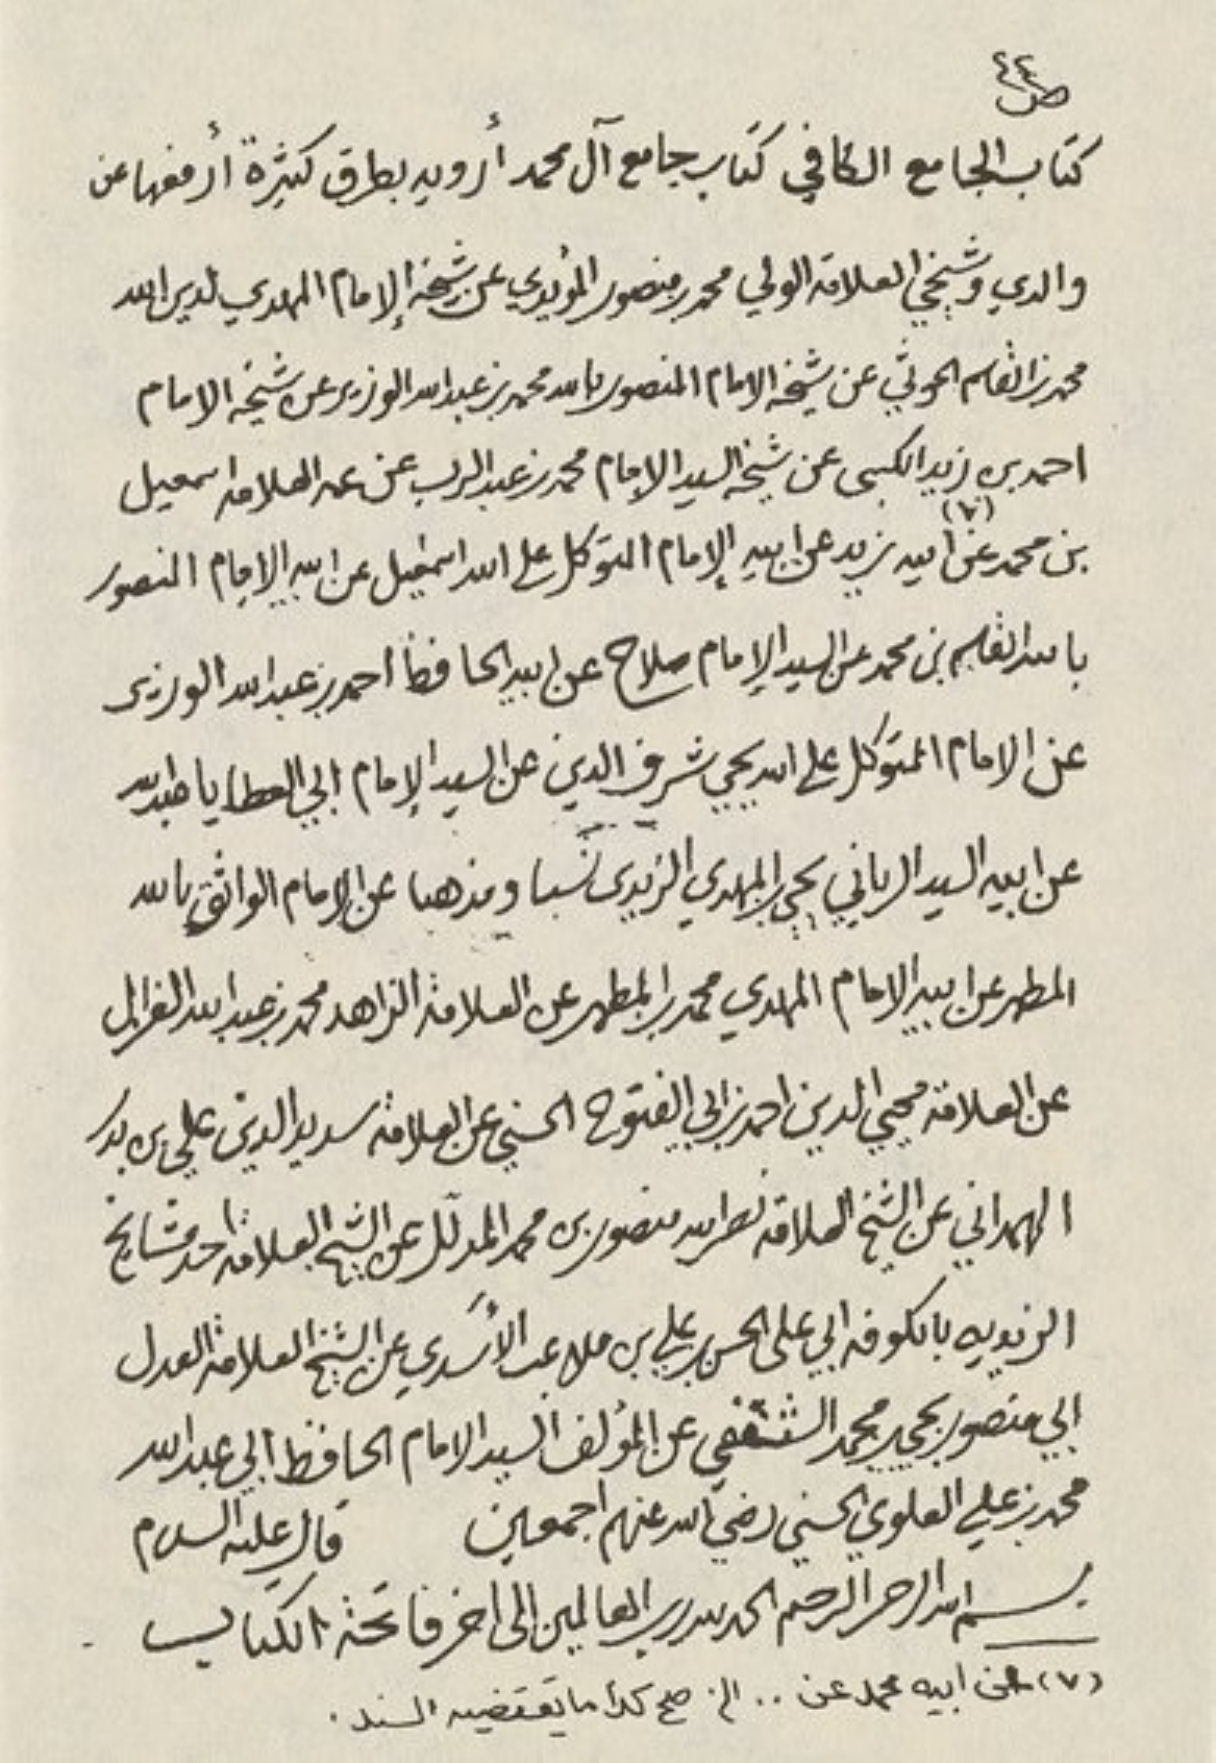 ص ٤٤
كتاب الجامع الكافي كتاب جامع آل محمد أرويه بطرق كثيرة أرفعها عن
والدي وشيخي العلامة الولي محمد بن منصور المؤيدي عن شيخه الإمام المهدي لدين الله
محمد بن القاسم الحوثي عن شيخه الامام المنصور بالله محمد بن عبدالله الوزير عن شيخه الامام
احمد بن زيد الكبسي عن شيخه السيد الإمام محمد بن عبد الرب عن عمه العلامة اسمعيل
بن محمد عن (٧) ابيه زيد عن ابيه الإمام المتوكل على الله اسمعيل عن ابيه الإمام المنصور
بالله القاسم بن محمد عن السيد الإمام صلاح عن ابيه الحافظ احمد بن عبدالله الوزير
عن الامام المتوكل على الله يحيى شرف الدين عن السيد الإمام ابي العطايا عبدالله
عن ابيه السيد الرباني يحيى بن المهدي الزيدي نسبا ومذهبا عن الإمام الواثق بالله
المطهر عن ابيه الامام المهدي محمد بن المطهر عن العلامة الزاهد محمد بن عبدالله الغزال
عن العلامة محيي الدين احمد بن ابي الفتوح الحسني عن العلامة سديد الدين علي بن بدر
الهمداني عن الشيخ العلامة نصرالله منصور بن محمد المدلل عن الشيخ العلامة احد مشايخ
الزيديه بالكوفه ابي علي الحسن بن علي بن ملاعب الأسدي عن الشيخ العلامة العدل
ابي منصور يحيى بن محمد الثقفي عن المؤلف السيد الامام الحافظ ابي عبدالله
محمد بن علي العلوي الحسني رضي الله عنهم اجمعين قال عليه السلام
بسم الله الرحمن الرحيم الحمد لله رب العالمين الى اخر فاتحة الكتاب
(٧) عن ابيه محمد عن .. الخ صح كذا ما يقتضيه السند .